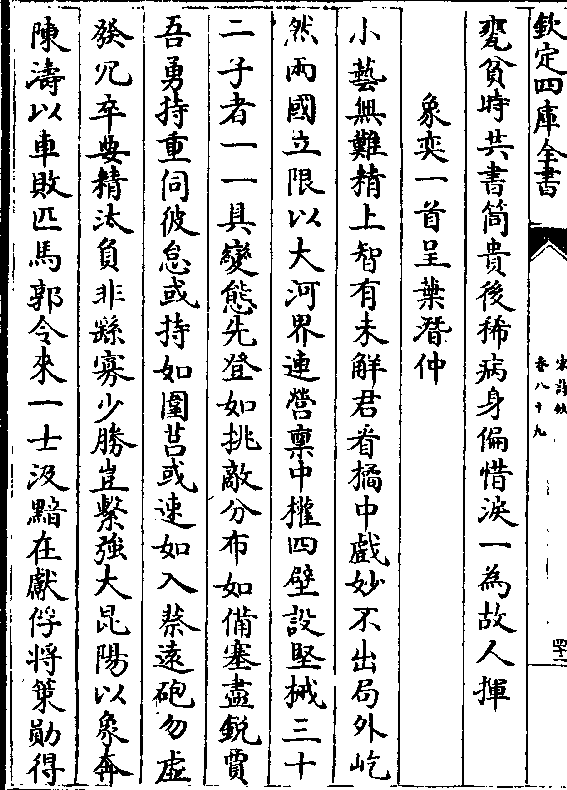 欽定四庫全書
宋詩鈔
卷八十九
甕貧時共書筒貴後稀病身偏惜淚一為故人揮
象奕一首呈葉潛仲
小藝無難精上智有未解君看橘中戲妙不出局外屹
然兩國立限以大河界連營禀中權四壁設堅械三十
二子者一一具變態先登如挑敵分布如備塞盡銳賈
吾勇持重伺彼怠或持如圍莒或速如入蔡遠砲勿虛
發冗卒要精汰負非繇寡少勝豈繫強大昆陽以象奔
陳濤以車敗匹馬郭令來一士汲黯在獻俘將策勛得